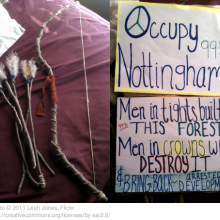 Occupy 99%
Nottingham
Men in tights built
THIS FOREST
Men in crowns
DESTROY IT
& BRING BACK ARRESTED
DEVELOP
to © 2011 Leah Jones, Flickr
//creativecommons.org/licenses/by-sa/2.0/